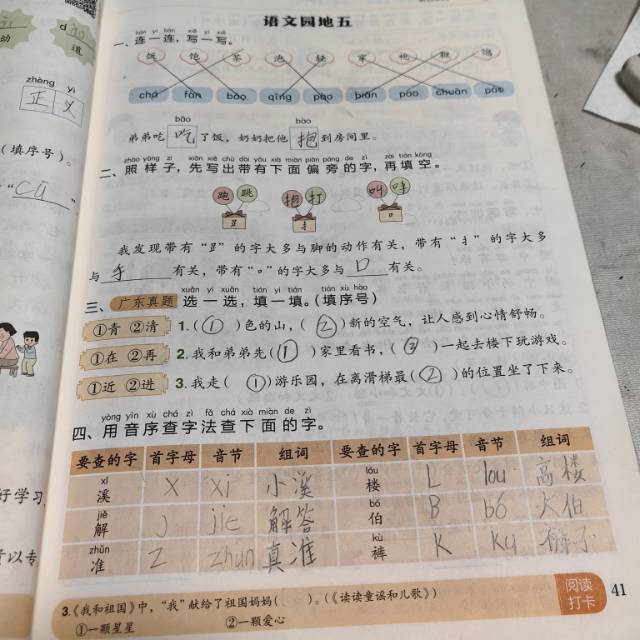 动
d
道
zhèng yì
正义
(填序号)。
“CU”
好学习
语文园地五
yī lián yī lián, xiě yī xiě
一、连一连,写一写。
饭 饱 茶 泡 轻 鞭 炮
chá fàn bǎo qīng pào biān pào chuān pǎo
bǎo bào
弟弟吃吃了饭,奶奶把他抱到房间里。
zhào yàng zi xiān xiě chū dài yǒu xià miàn piān páng de zì zài tián kòng
二、照样子,先写出带有下面偏旁的字,再填空。
跑 跳 抱 打 叫
⻊ 扌 口
我发现带有“⻊”的字大多与脚的动作有关,带有“扌”的字大多
与手有关,带有“口”的字大多与口有关。
xuǎn yī xuǎn tián yī tián tián xù hào
三、广东真题 选一选,填一填。(填序号)
①青 ②清 1.(①)色的山,(②)新的空气,让人感到心情舒畅。
①在 ②再 2.我和弟弟先(①)家里看书,(②)一起去楼下玩游戏。
①近 ②进 3.我走(①)游乐园,在离滑梯最(②)的位置坐了下来。
yòng yīn xù chá zì fǎ chá xià miàn de zì
四、用音序查字法查下面的字。
要查的字 首字母 音节 组词 要查的字 首字母 音节 组词
xī lóu
溪 X xi 小溪 楼 L lou 高楼
jiě bó
解 J jie 解答 伯 B bó 大伯
zhǔn kù
准 Z zhun 真准 裤 K ku 裤子
3.《我和祖国》中,“我”献给了祖国妈妈( )。(《读读童谣和儿歌》)
①一颗星星 ②一颗爱心
阅读
打卡
41